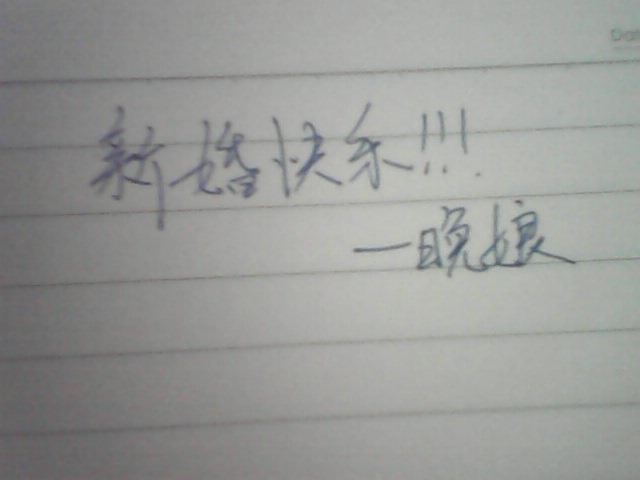 新婚快乐!!!
—晚娘